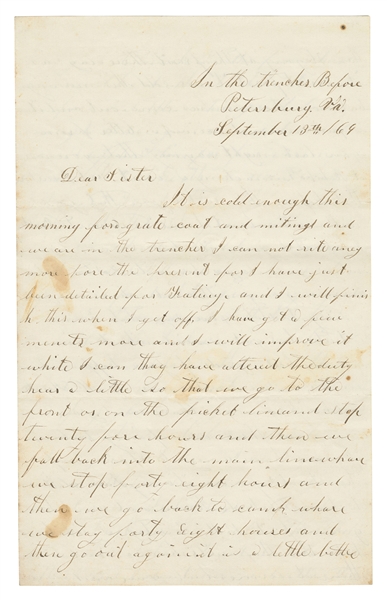 In the trenches Before
Petersburg. Va.
September 13th/64
Dear Sister
It is cold enough this
morning for grate coat and mitings and
we are in the trenches I can not rite any
more fore the present for I have just
been detailed for Fatiuge and I will finis
h this when I get off. I have got a few
menets more and I will improve it
while I can thay have altered the duty
hear a little So that we go to the
front or on the picket line and stop
twenty fore hours and then we
fall back into the main line whare
we stop forty eight hours and
then we go back to camp whare
we stay forty Eight houres and
then go out again it is a little bette